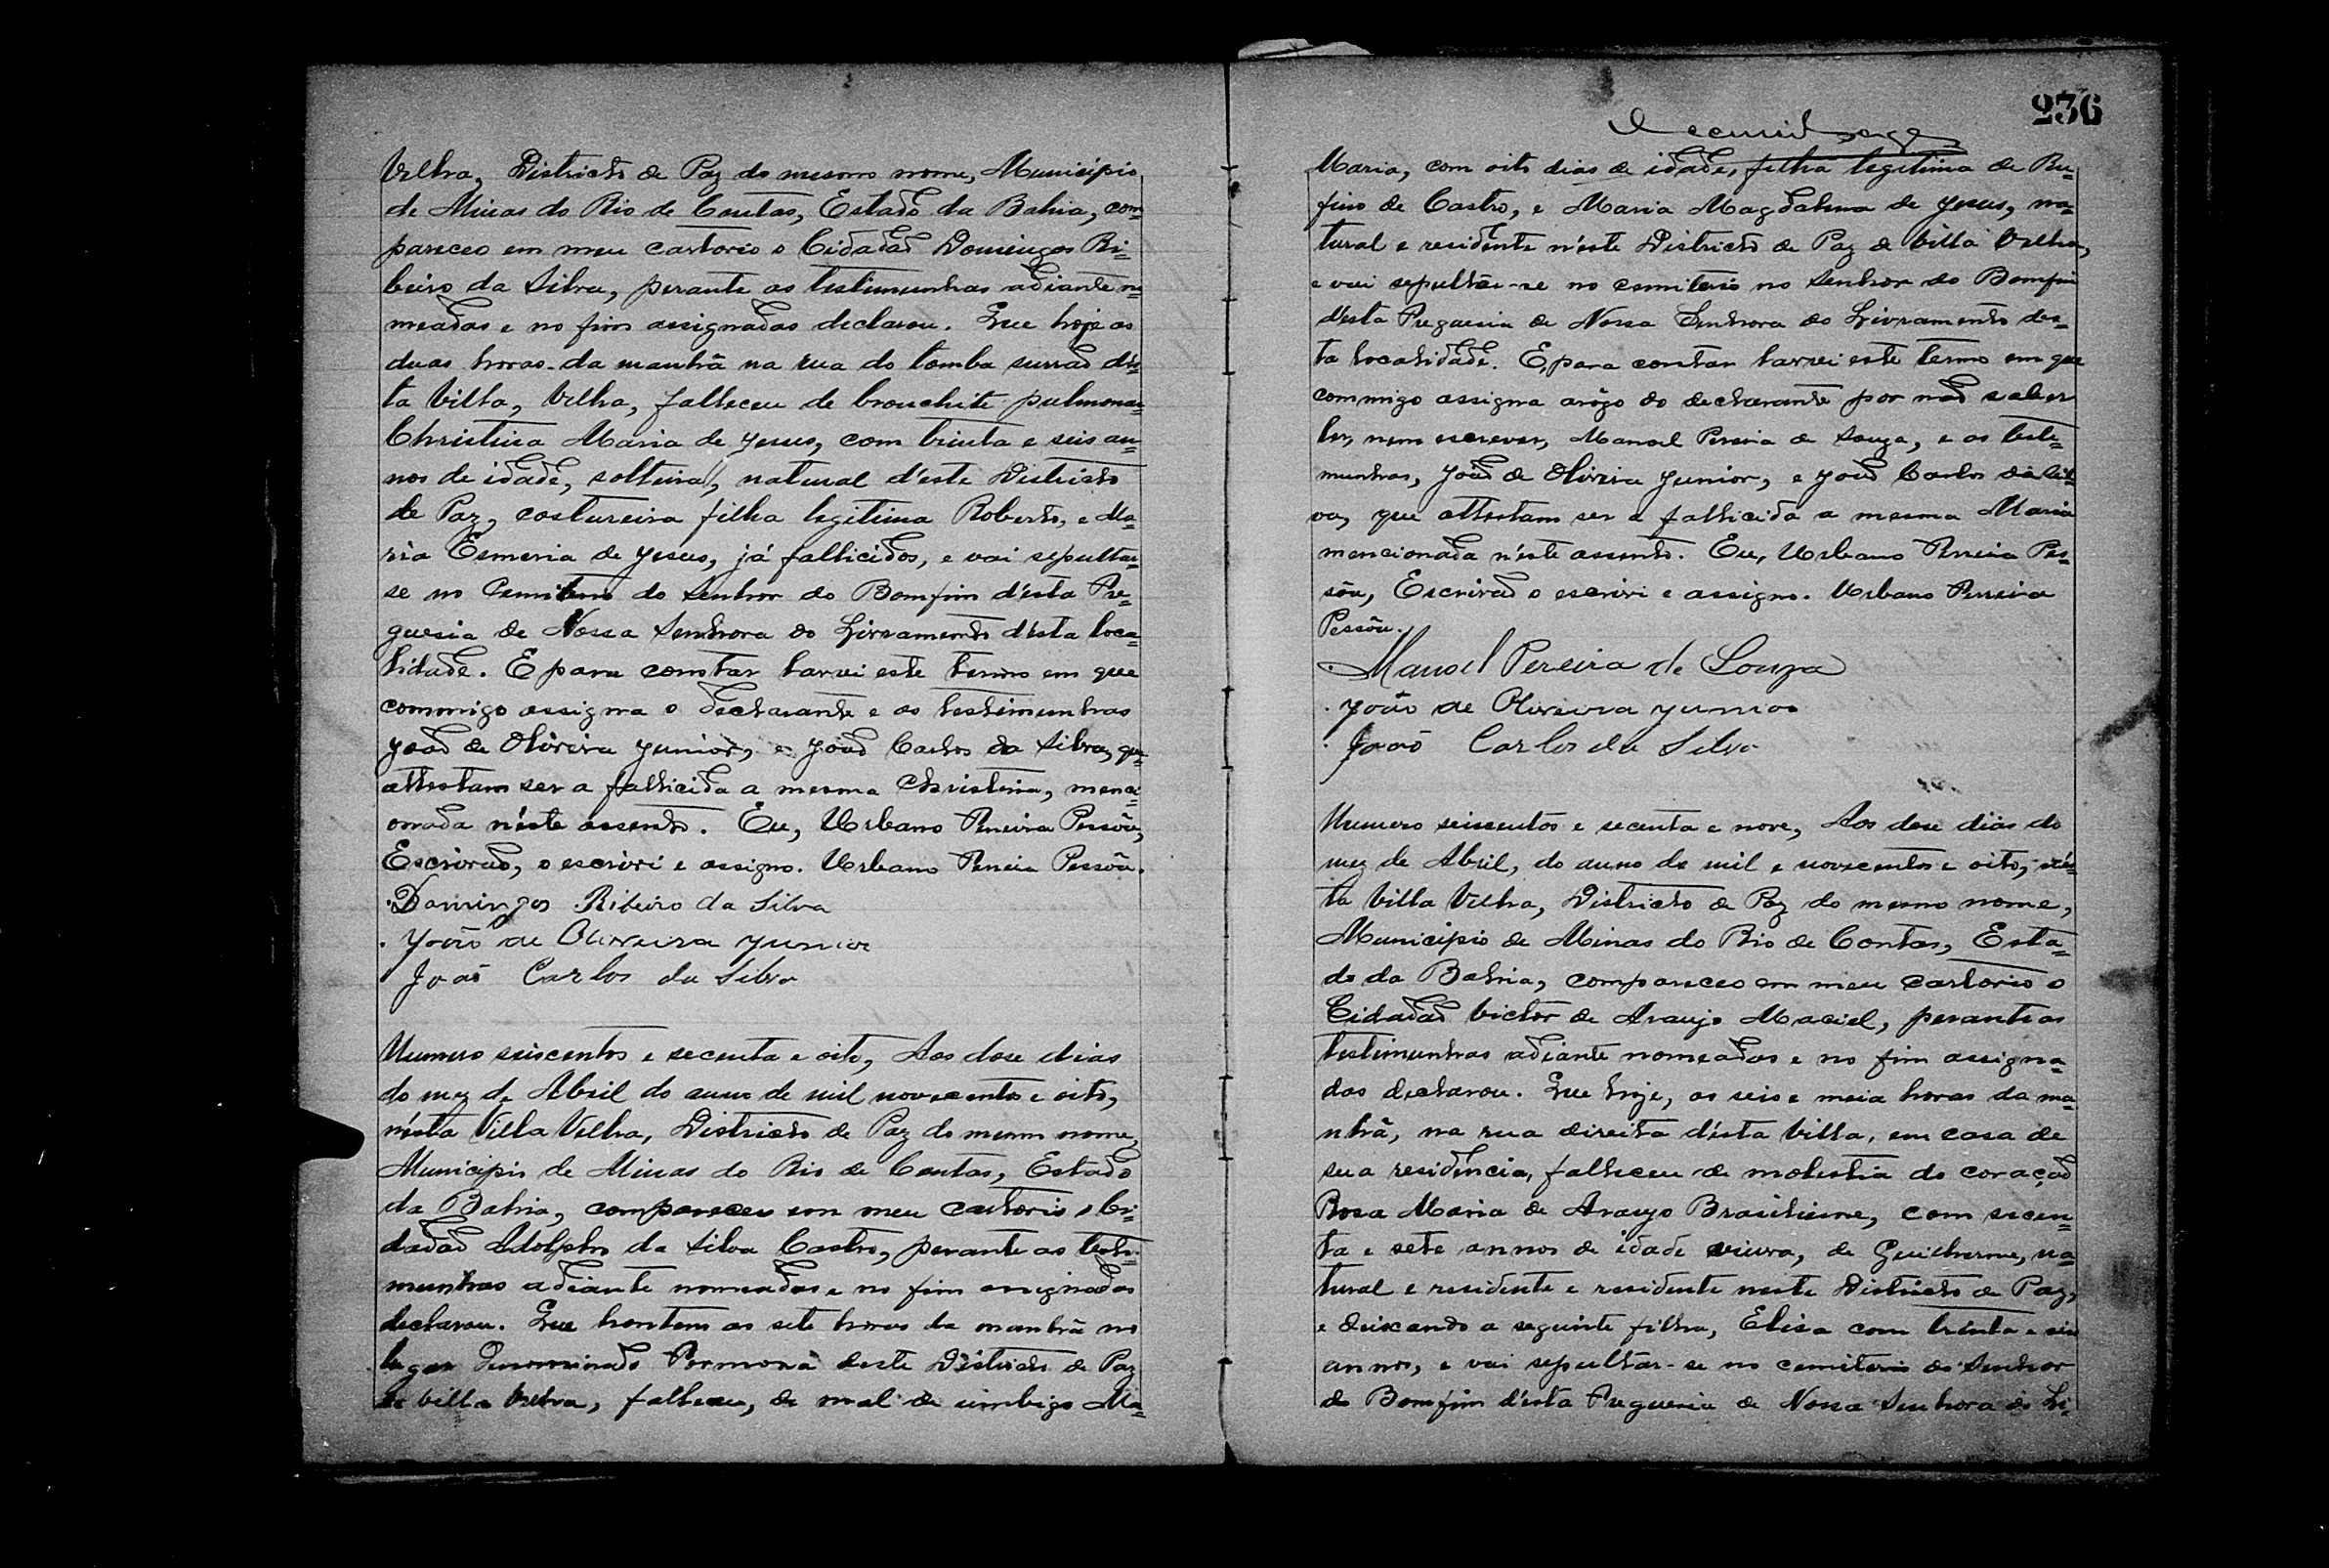 Velha, Districto de Paz do mesmo nome, Municipio
de Minas do Rio de Contas, Estado da Bahia, com=
pareceo em meu cartorio o Cidadaõ Domingos Ri=
beiro da Silva, perante as testimunhas adiante no=
meadas e no fim assignadas declarou. Que hoje as
duas horas da manhã na rua do tomba surraõ dés=
ta Villa, Velha, falleceu de bronchite pulmonar
Christina Maria de Jesus, com trinta e seis an=
nos de idade, solteira, natural d'este Districto
de Paz, costureira filha legitima Roberto, e Ma=
ria Esmeria de Jesus, já fallicidos, e vai sepultar=
se no Cemiterio do Senhor do Bomfim d'ésta Fre=
guesia de Nossa Senhora do Livramento d'ésta loca=
lidade. E para constar lavrei este termo em que
commigo assigna o declarante e as testimunhas
João de Oliveira Junior, e João Carlos da Silva, que
attestam ser a fallicida a mesma Christina, menci=
onada n'éste assento. Eu, Urbano Pereira Pessôa,
Escrivaõ, o escrivi e assigno. Urbano Pereira Pessôa.
Domingos Ribeiro da Silva
João de Oliveira Junior
João Carlos da Silva
Numero seiscentos e secenta e oito, Aos dose dias
do mez de Abril do anno de mil novecentos e oito,
n'ésta Villa Velha, Districto de Paz do mesmo nome,
Municipio de Minas do Rio de Contas, Estado
da Bahia, compareceu em meu cartorio o Ci=
dadaõ Adolpho da Silva Castro, perante as testi=
munhas adiante nomeadas e no fim assignadas
declarou. Que hontem as sete horas da manhã no
lugar denominado deste Districto de Paz
de Villa Velha, falleceu, de mal de umbigo Ma=
236
Maria, com oito dias de idade, filha legitima de Ru=
fino de Castro, e Maria Magdalena de Jesus, na=
tural e residente n'éste Districto de Paz de Villa Velha,
e vai sepultar-se no cemiterio no Senhor do Bomfim
desta Freguesia de Nossa Senhora do Livramento des=
ta localidade. E, para constar lavrei este termo em que
commigo assigna arôgo do declarante por naõ saber
ler, nem escrever, Manoel Pereira de Souza, e as teste=
munhas, João de Oliveira Junior, e João Carlos da Sil=
va, que attestam ser a fallicida a mesma Maria
mencionada n'éste assento. Eu, Urbano Pereira Pes=
sôa, Escrivaõ o escrivi e assigno. Urbano Pereira
Pessôa.
Manoel Pereira de Souza
João de Oliveira Junior
João Carlos da Silva
Numero seiscentos e secenta e nove, Aos dose dias do
mez de Abril, do anno de mil e novecentos e oito, n'és=
ta Villa Velha, Districto de Paz do mesmo nome,
Municipio de Minas do Rio de Contas, Esta=
do da Bahia, compareceo em meu cartorio o
Cidadaõ Victor de Araujo Maciel, perante as
testimunhas adiante nomeadas e no fim assigna=
das declarou. Que hoje, as seis e meia horas da ma=
nhã, na rua direita d'ésta Villa, em casa de
sua residencia, falleceu de molestia do coraçaõ
Rosa Maria de Araujo Brasiliense, com secen=
ta e sete annos de idade viuva, de Guilherme, na=
tural e residente e residente neste Districto de Paz,
e deixando a seguinte filha, Elisa com trinta e seis
annos, e vai sepultar-se no cemiterio do Senhor
do Bomfim d'ésta Freguesia de Nossa Senhora do Li=